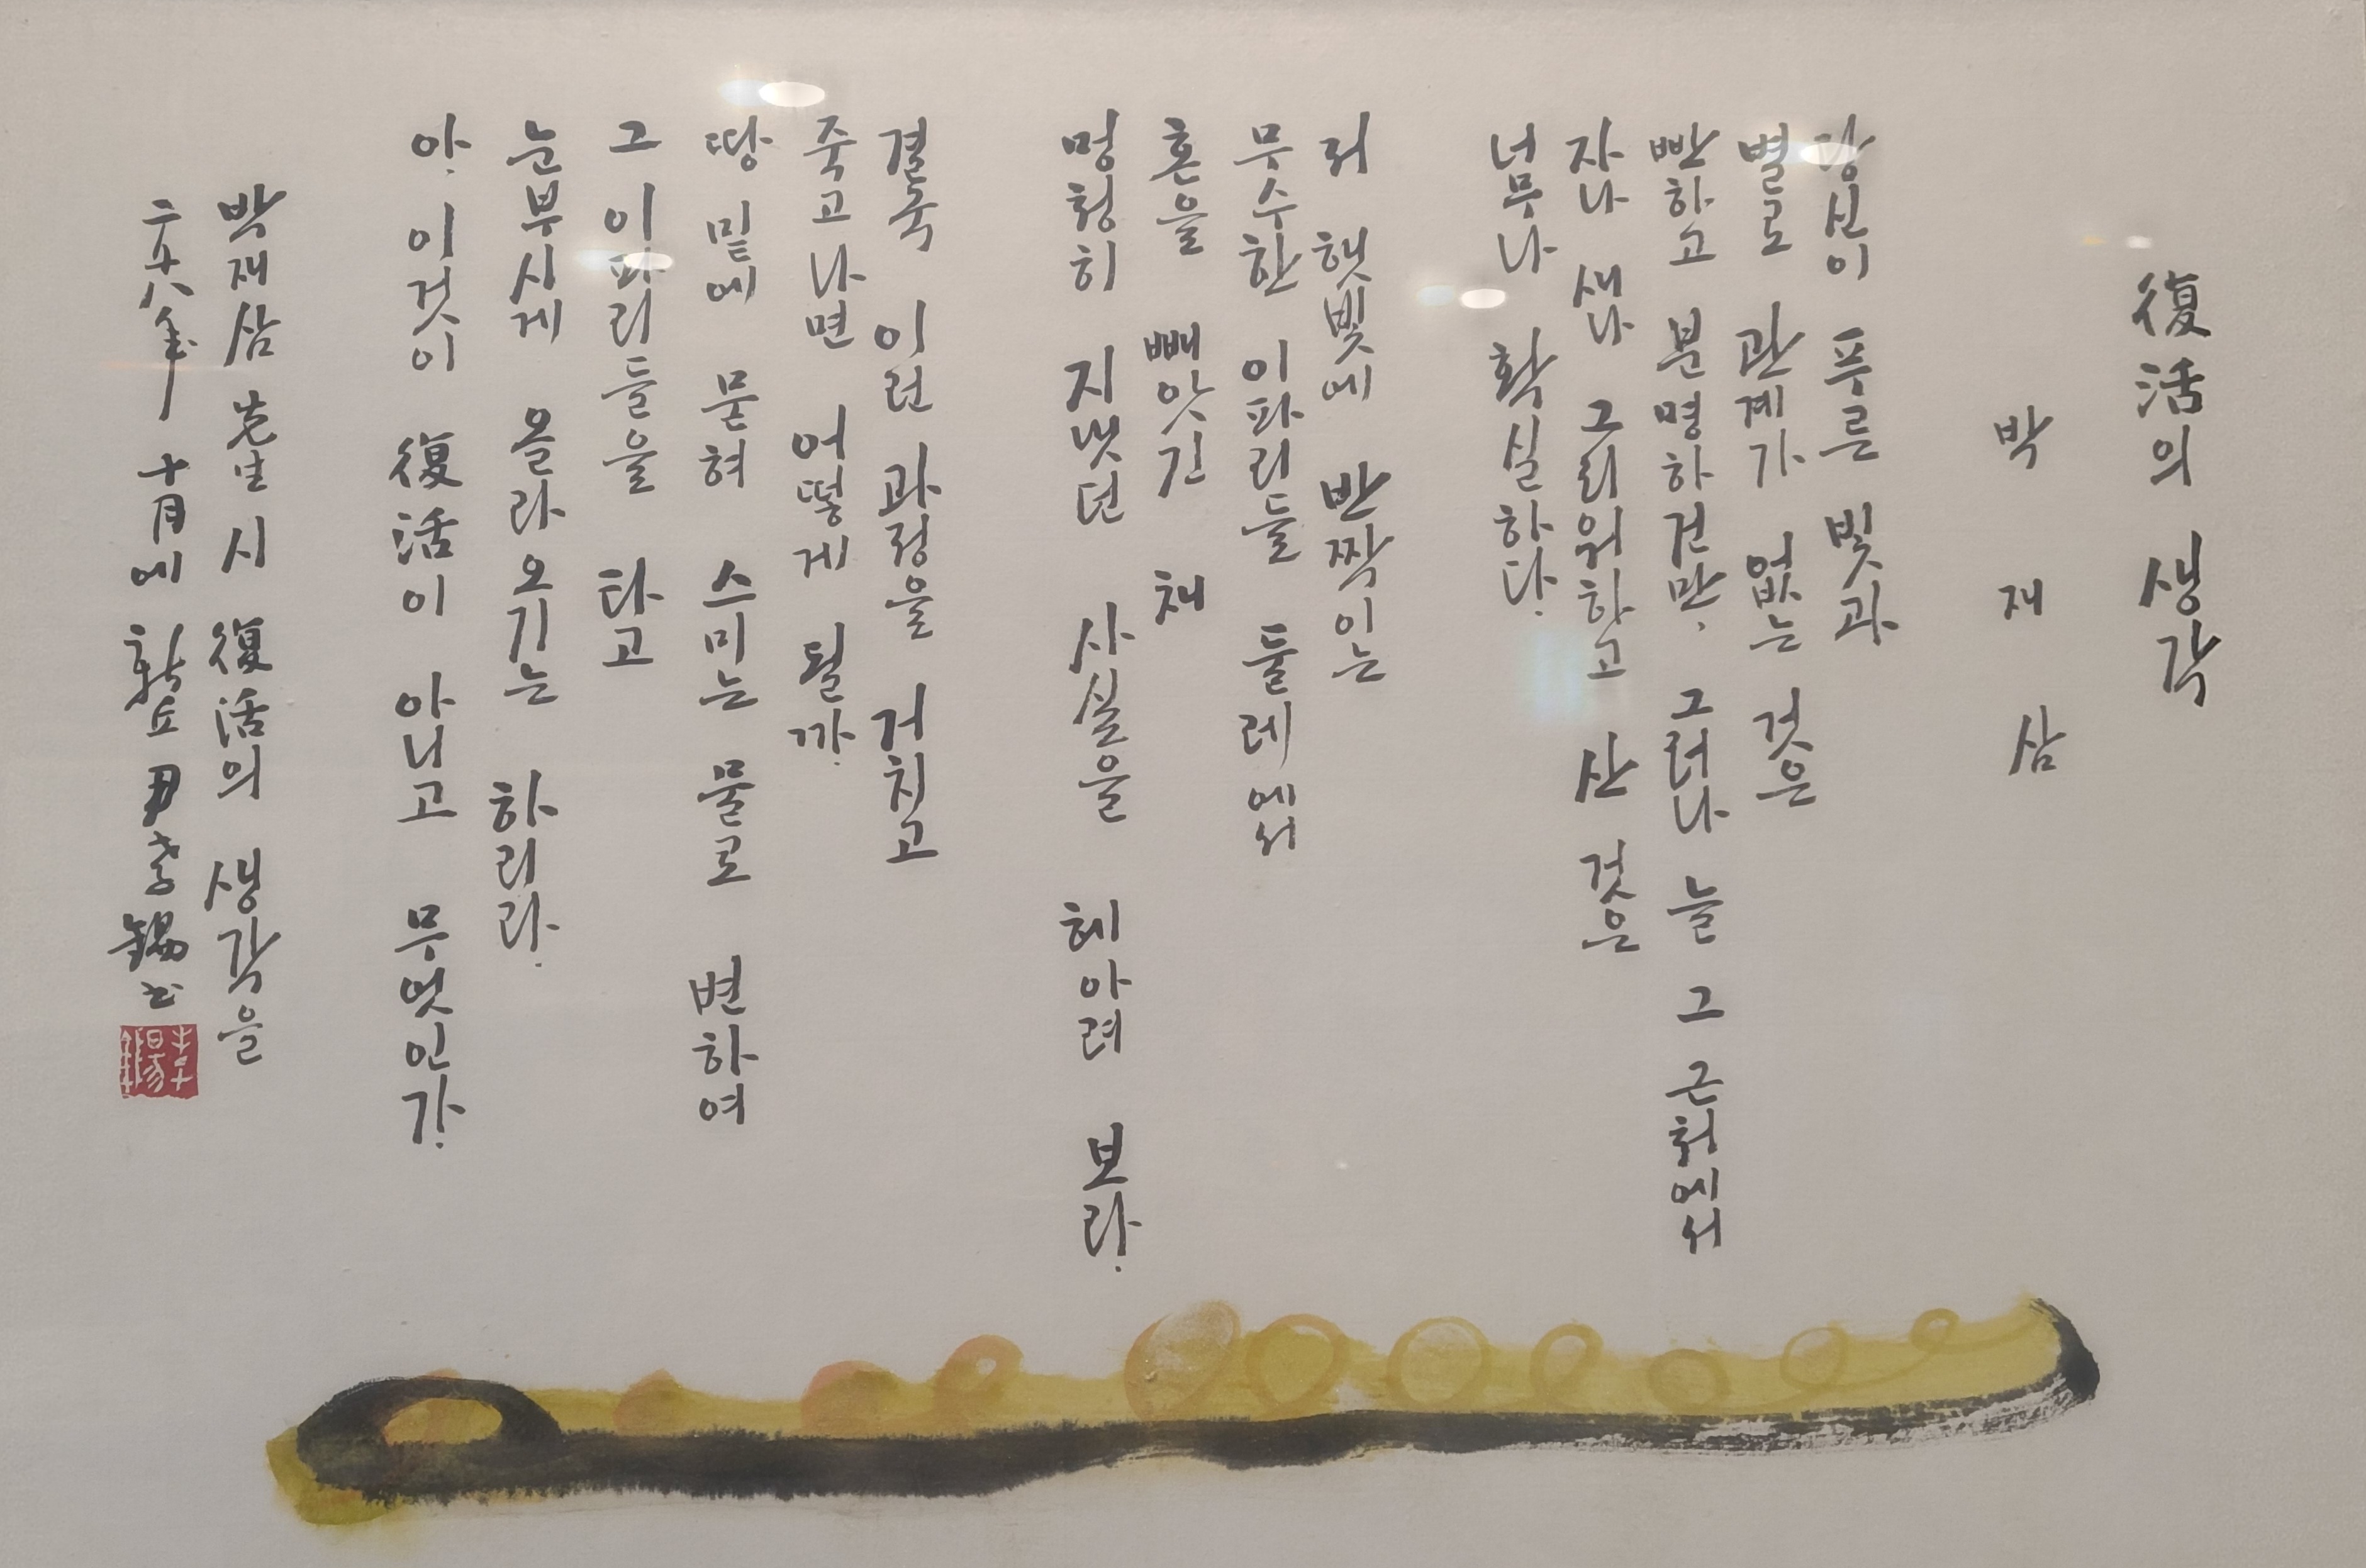 復活의 생각
박재삼
당신이 푸른 빛과
별로 관계가 없는 것은
빤하고 분명하건만, 그러나 늘 그 근처에서
자나 새나 그리워하고 산 것은
너무나 확실하다.
저 햇빛에 반짝이는
무수한 이파리들 둘레에서
혼을 빼앗긴 채
멍청히 지냈던 사실을 헤아려 보라.
결국 이런 과정을 거치고
죽고 나면 어떻게 될까.
땅 밑에 묻혀 스미는 물로 변하여
그 이파리들을 타고
눈부시게 올라오기는 하리라.
아, 이것이 復活이 아니고 무엇인가.
박재삼 先生 시 復活의 생각을
十月에 尹孝錫